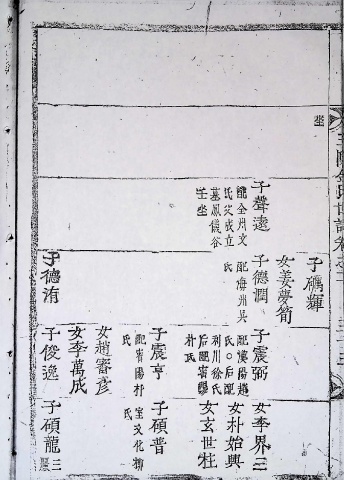 坐
子聲遠
配全州文
氏父成立
墓鳳儀谷
壬坐
女姜夢筍
子德潤
配海州吳
氏
子德洧
子震弼
配漢陽趙
氏○后配
利川徐氏
后配密陽
朴氏
子震亨
配密陽朴
氏
女趙審彦
女李萬成
子俊逸
女李界三
女朴始興
女玄世柱
子碩普
室文化柳
氏
子碩龍